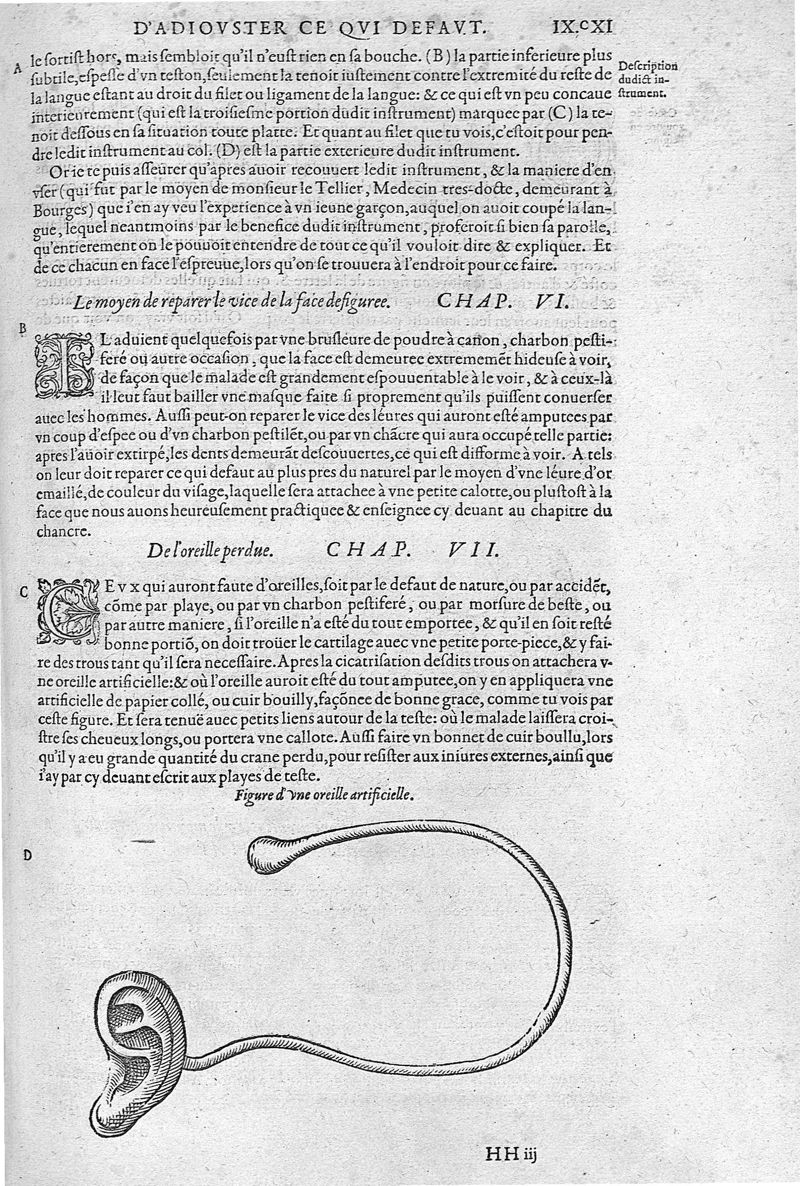 D'ADIOVSTER CE QVI DEFAVT. IX.cXI
A
le sortist hors, mais sembloit qu'il n'eust rien en sa bouche. (B) la partie inferieure plus
subtile, espesse d'vn teston, seulement la tenoit iustement contre l'extremité du reste de
la langue estant au droit du filet ou ligament de la langue: & ce qui est vn peu concaue
interieurement (qui est la troisiesme portion dudit instrument) marquee par (C) la te-
noit dessous en sa situation toute platte: Et quant au filet que tu vois, c'estoit pour pen-
dre ledit instrument au col. (D) est la partie exterieure dudit instrument.
Description
dudict in-
strument.
Or ie te puis asseurer qu'apres auoir recouuert ledit instrument, & la maniere d'en
vser (qui fut par le moyen de monsieur le Tellier, Medecin tres-docte, demeurant à
Bourges) que i'en ay veu l'experience à vn ieune garçon, auquel on auoit coupé la lan-
gue, lequel neantmoins par le benefice dudit instrument, proferoit si bien sa parolle,
qu'entierement on le pouuoit entendre de tout ce qu'il vouloit dire & expliquer. Et
de ce chacun en face l'espreuue, lors qu'on se trouuera à l'endroit pour ce faire.
Le moyen de reparer le vice de la face defiguree. CHAP. VI.
B
IL aduient quelquefois par vne brusleure de poudre à canon, charbon pesti-
feré ou autre occasion, que la face est demeuree extrememēt hideuse à voir,
de façon que le malade est grandement espouuentable à le voir, & à ceux-là
il leut faut bailler vne masque faite si proprement qu'ils puissent conuerser
auec les hommes. Aussi peut-on reparer le vice des léures qui auront esté amputees par
vn coup d'espee ou d'vn charbon pestilēt, ou par vn chācre qui aura occupé telle partie:
apres l'auoir extirpé, les dents demeurāt descouuertes, ce qui est difforme à voir. A tels
on leur doit reparer ce qui defaut au plus pres du naturel par le moyen d'vne léure d'or
emaillé, de couleur du visage, laquelle sera attachee à vne petite calotte, ou plustost à la
face que nous auons heureusement practiquee & enseignee cy deuant au chapitre du
chancre.
De l'oreille perdue. CHAP. VII.
C
CEvx qui auront faute d'oreilles, soit par le defaut de nature, ou par accidēt,
cōme par playe, ou par vn charbon pestiferé, ou par morsure de beste, ou
par autre maniere, si l'oreille n'a esté du tout emportee, & qu'il en soit resté
bonne portiō, on doit troüer le cartilage auec vne petite porte-piece, & y fai-
re des trous tant qu'il sera necessaire. Apres la cicatrisation desdits trous on attachera v-
ne oreille artificielle: & où l'oreille auroit esté du tout amputee, on y en appliquera vne
artificielle de papier collé, ou cuir bouilly, façōnee de bonne grace, comme tu vois par
ceste figure. Et sera tenuë auec petits liens autour de la teste: où le malade laissera croi-
stre ses cheueux longs, ou portera vne callote. Aussi faire vn bonnet de cuir boullu, lors
qu'il y a eu grande quantité du crane perdu, pour resister aux iniures externes, ainsi que
i'ay par cy deuant escrit aux playes de teste.
Figure d'vne oreille artificielle.
D
HH iij